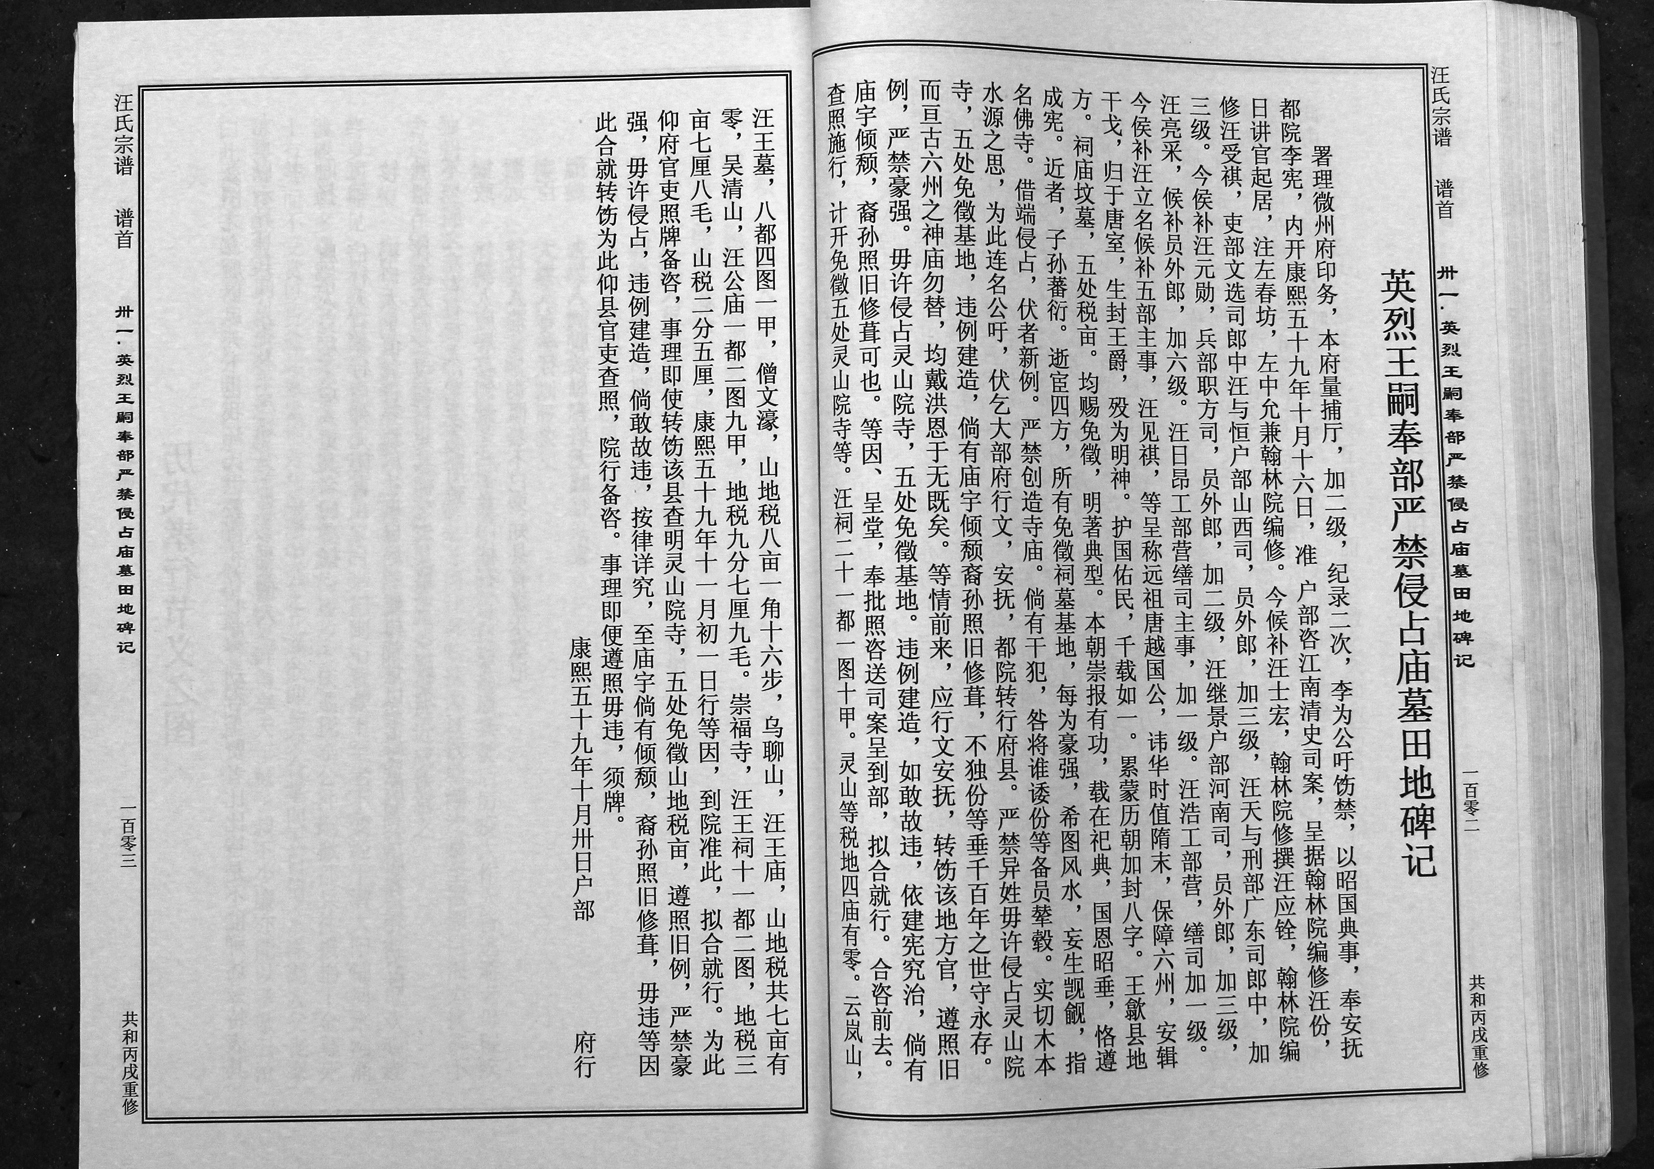 汪氏宗谱　谱首　卅一·英烈王嗣奉部严禁侵占庙墓田地碑记　一百零二　共和丙戌重修
英烈王嗣奉部严禁侵占庙墓田地碑记
署理微州府印务，本府量捕厅，加二级，纪录二次，李为公吁饬禁，以昭国典事，奉安抚
都院李宪，内开康熙五十九年十月十六日，准　户部咨江南清史司案，呈据翰林院编修汪份，
日讲官起居，注左春坊，左中允兼翰林院编修。今候补汪士宏，翰林院修撰汪应铨，翰林院编
修汪受祺，吏部文选司郎中汪与恒户部山西司，员外郎，加三级，汪天与刑部广东司郎中，加
三级。今侯补汪元勋，兵部职方司，员外郎，加二级，汪继景户部河南司，员外郎，加三级，
汪亮采，候补员外郎，加六级。汪日昂工部营缮司主事，加一级。汪浩工部营，缮司加一级。
今侯补汪立名候补五部主事，汪见祺，等呈称远祖唐越国公，讳华时值隋末，保障六州，安辑
干戈，归于唐室，生封王爵，殁为明神。护国佑民，千载如一。累蒙历朝加封八字。王歙县地
方。祠庙坟墓，五处税亩。均赐免徵，明著典型。本朝崇报有功，载在祀典，国恩昭垂，恪遵
成宪。近者，子孙蕃衍。逝宦四方，所有免徵祠墓基地，每为豪强，希图风水，妄生觊觎，指
名佛寺。借端侵占，伏者新例。严禁创造寺庙。倘有干犯，咎将谁诿份等备员辇毂。实切木本
水源之思，为此连名公吁，伏乞大部府行文，安抚，都院转行府县。严禁异姓毋许侵占灵山院
寺，五处免徵基地，违例建造，倘有庙宇倾颓裔孙照旧修葺，不独份等垂千百年之世守永存。
而亘古六州之神庙勿替，均戴洪恩于无既矣。等情前来，应行文安抚，转饬该地方官，遵照旧
例，严禁豪强。毋许侵占灵山院寺，五处免徵基地。违例建造，如敢故违，依建宪究治，倘有
庙宇倾颓，裔孙照旧修葺可也。等因、呈堂，奉批照咨送司案呈到部，拟合就行。合咨前去。
查照施行，计开免徵五处灵山院寺等。汪祠二十一都一图十甲。灵山等税地四庙有零。云岚山，
汪王墓，八都四图一甲，僧文濠，山地税八亩一角十六步，乌聊山，汪王庙，山地税共七亩有
零，吴清山，汪公庙一都二图九甲，地税九分七厘九毛。崇福寺，汪王祠十一都二图，地税三
亩七厘八毛，山税二分五厘，康熙五十九年十一月初一日行等因，到院准此，拟合就行。为此
仰府官吏照牌备咨，事理即使转饬该县查明灵山院寺，五处免徵山地税亩，遵照旧例，严禁豪
强，毋许侵占，违例建造，倘敢故违，按律详究，至庙宇倘有倾颓，裔孙照旧修葺，毋违等因
此合就转饬为此仰县官吏查照，院行备咨。事理即便遵照毋违，须牌。
康熙五十九年十月卅日户部　府行
汪氏宗谱　谱首　卅一·英烈王嗣奉部严禁侵占庙墓田地碑记　一百零三　共和丙戌重修